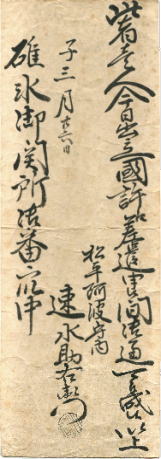 此者壱人今日出立國許江差遣申候間御通可被成候以上
松平阿波守内
子三月廿六日 速水助右衛門
碓氷御関所御番衆中